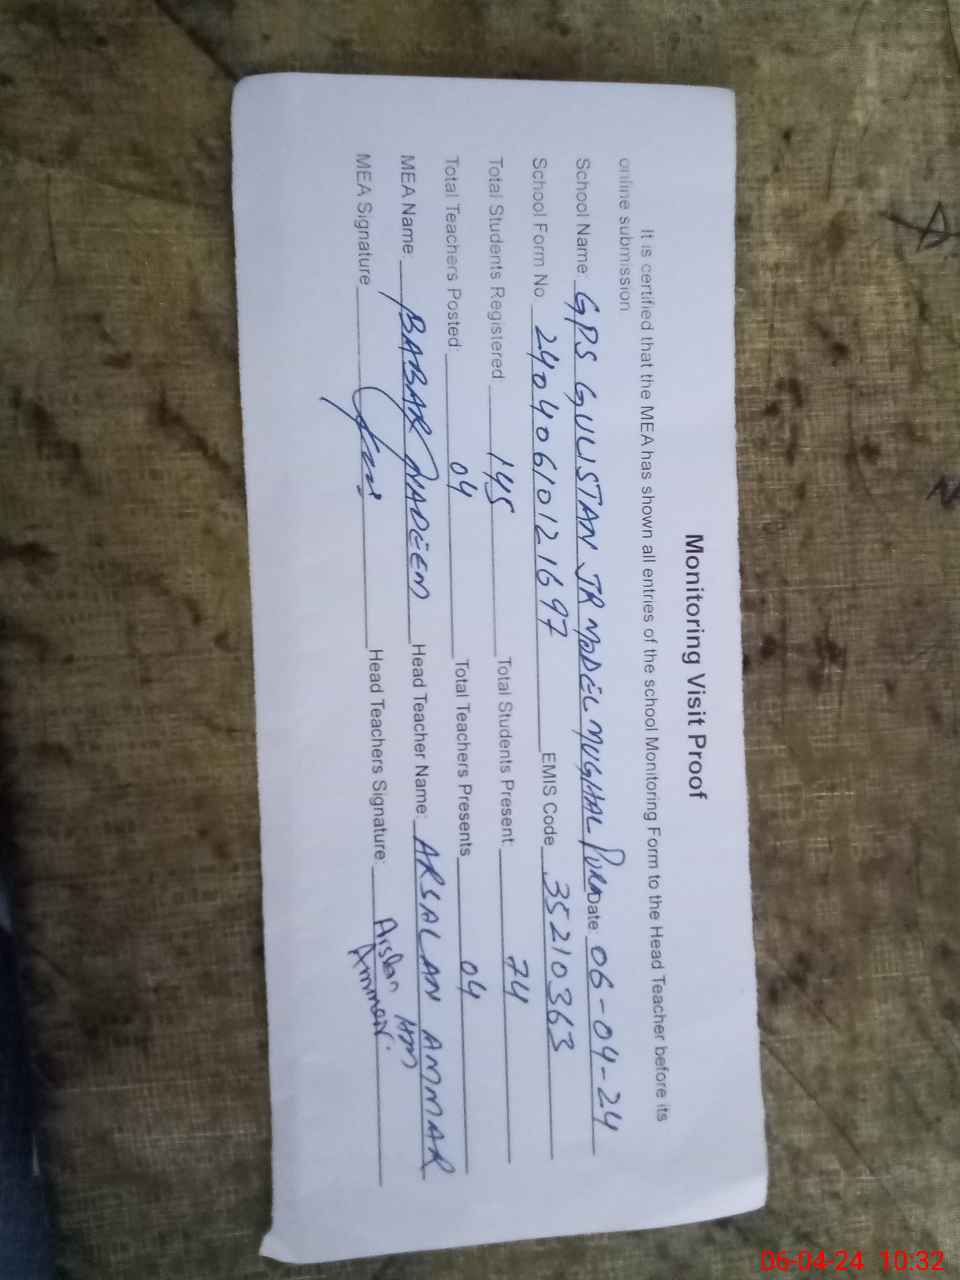 Monitoring Visit Proof
It is certified that the MEA has shown all entries of the school Monitoring Form to the Head Teacher before its
online submission
School Name: GPS GULISTAN JR MODEL MUGHAL PURA Date: 06-04-24
School Form No 2404061012 1697 EMIS Code 35210363
Total Students Registered 145 Total Students Present 74
Total Teachers Posted: 04 Total Teachers Presents 04
MEA Name: BABAR NADEEM Head Teacher Name: ARSALAN AMMAR
MEA Signature Head Teachers Signature: Arslan
Ammar.
06-04-24 10:32